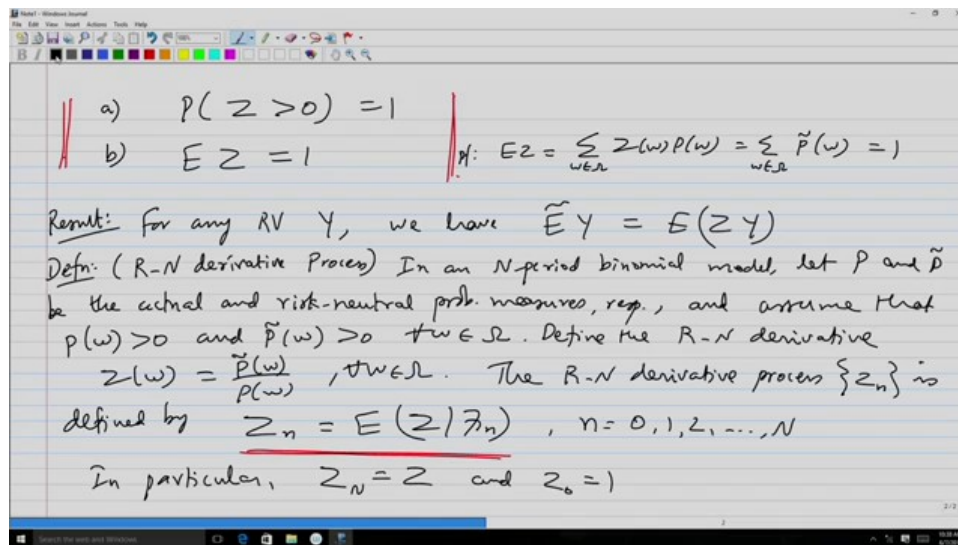 Note1 - Windows Journal
File Edit View Insert Actions Tools Help
a) P( Z > 0 ) = 1
b) E Z = 1
Pf: EZ = Σ_{ω∈Ω} Z(ω) P(ω) = Σ_{ω∈Ω} P̃(ω) = 1
Result: For any RV Y, we have Ẽ Y = E(ZY)
Defn: (R-N derivative Process) In an N-period binomial model, let P and P̃
be the actual and risk-neutral prob. measures, resp., and assume that
P(ω) > 0 and P̃(ω) > 0 ∀ω ∈ Ω. Define the R-N derivative
Z(ω) = P̃(ω)/P(ω) , ∀ω∈Ω. The R-N derivative process {Z_n} is
defined by Z_n = E(Z|ℱ_n) , n = 0, 1, 2, ..., N
In particular, Z_N = Z and Z_0 = 1
2/2
2
Search the web and Windows